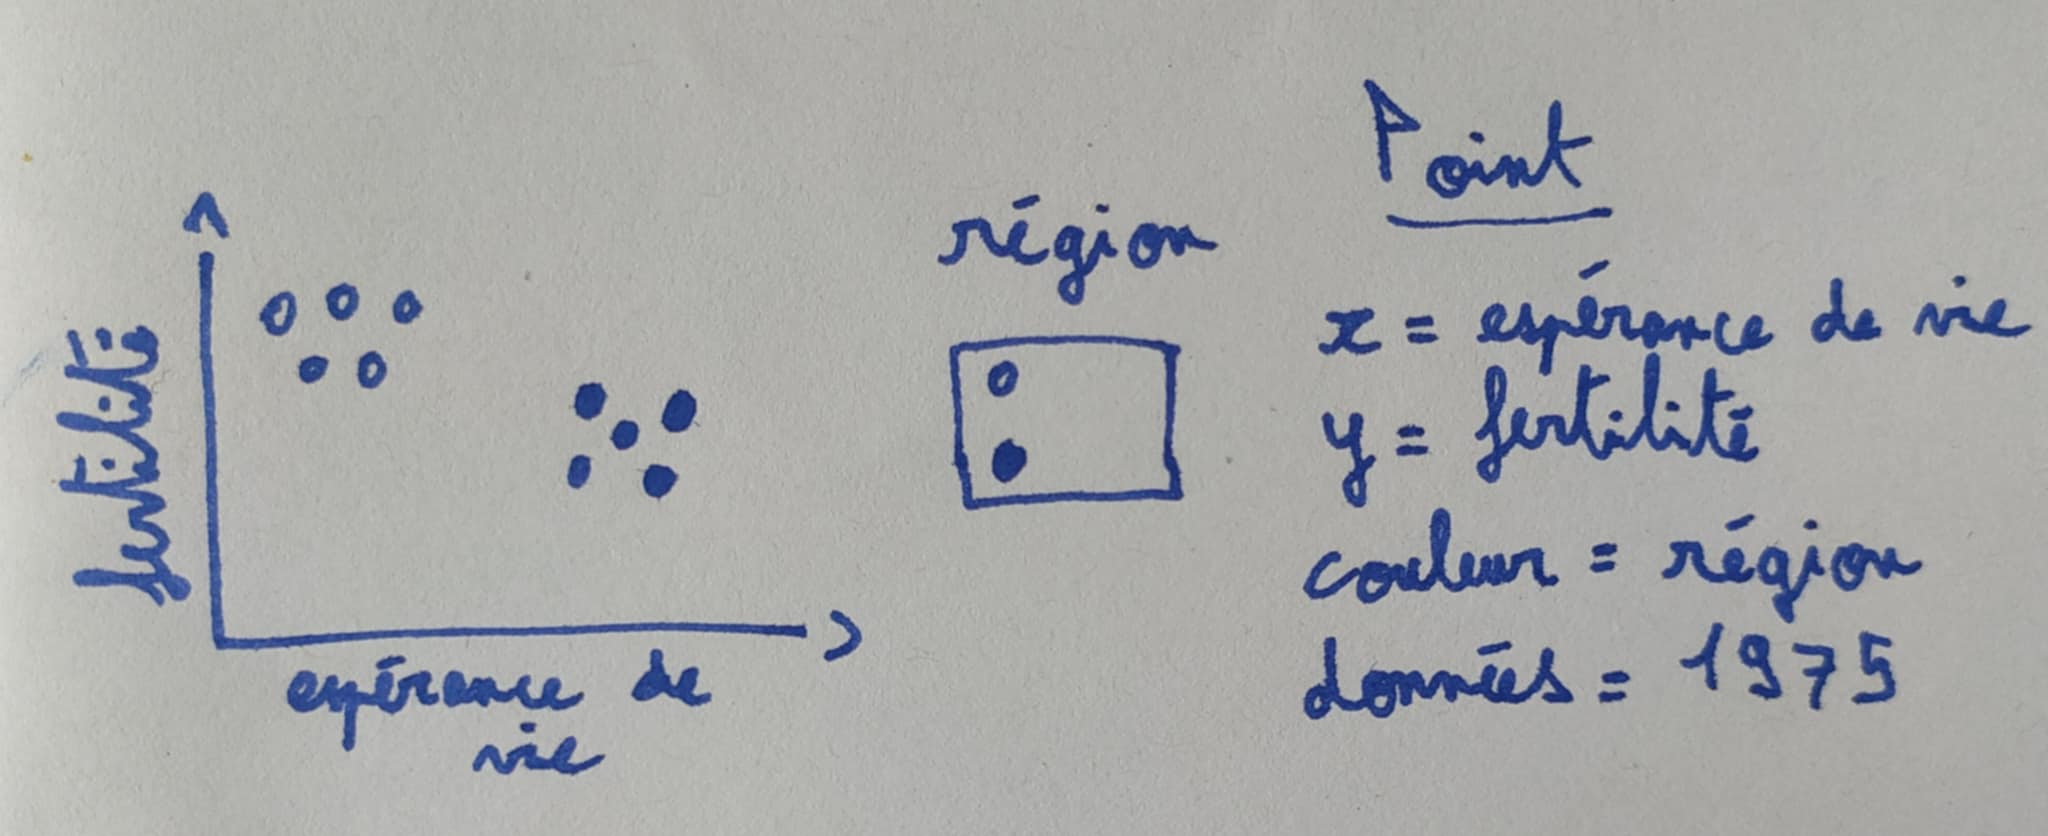 fertilité
espérance de
vie
région
Point
x = espérance de vie
y = fertilité
couleur = région
données = 1975